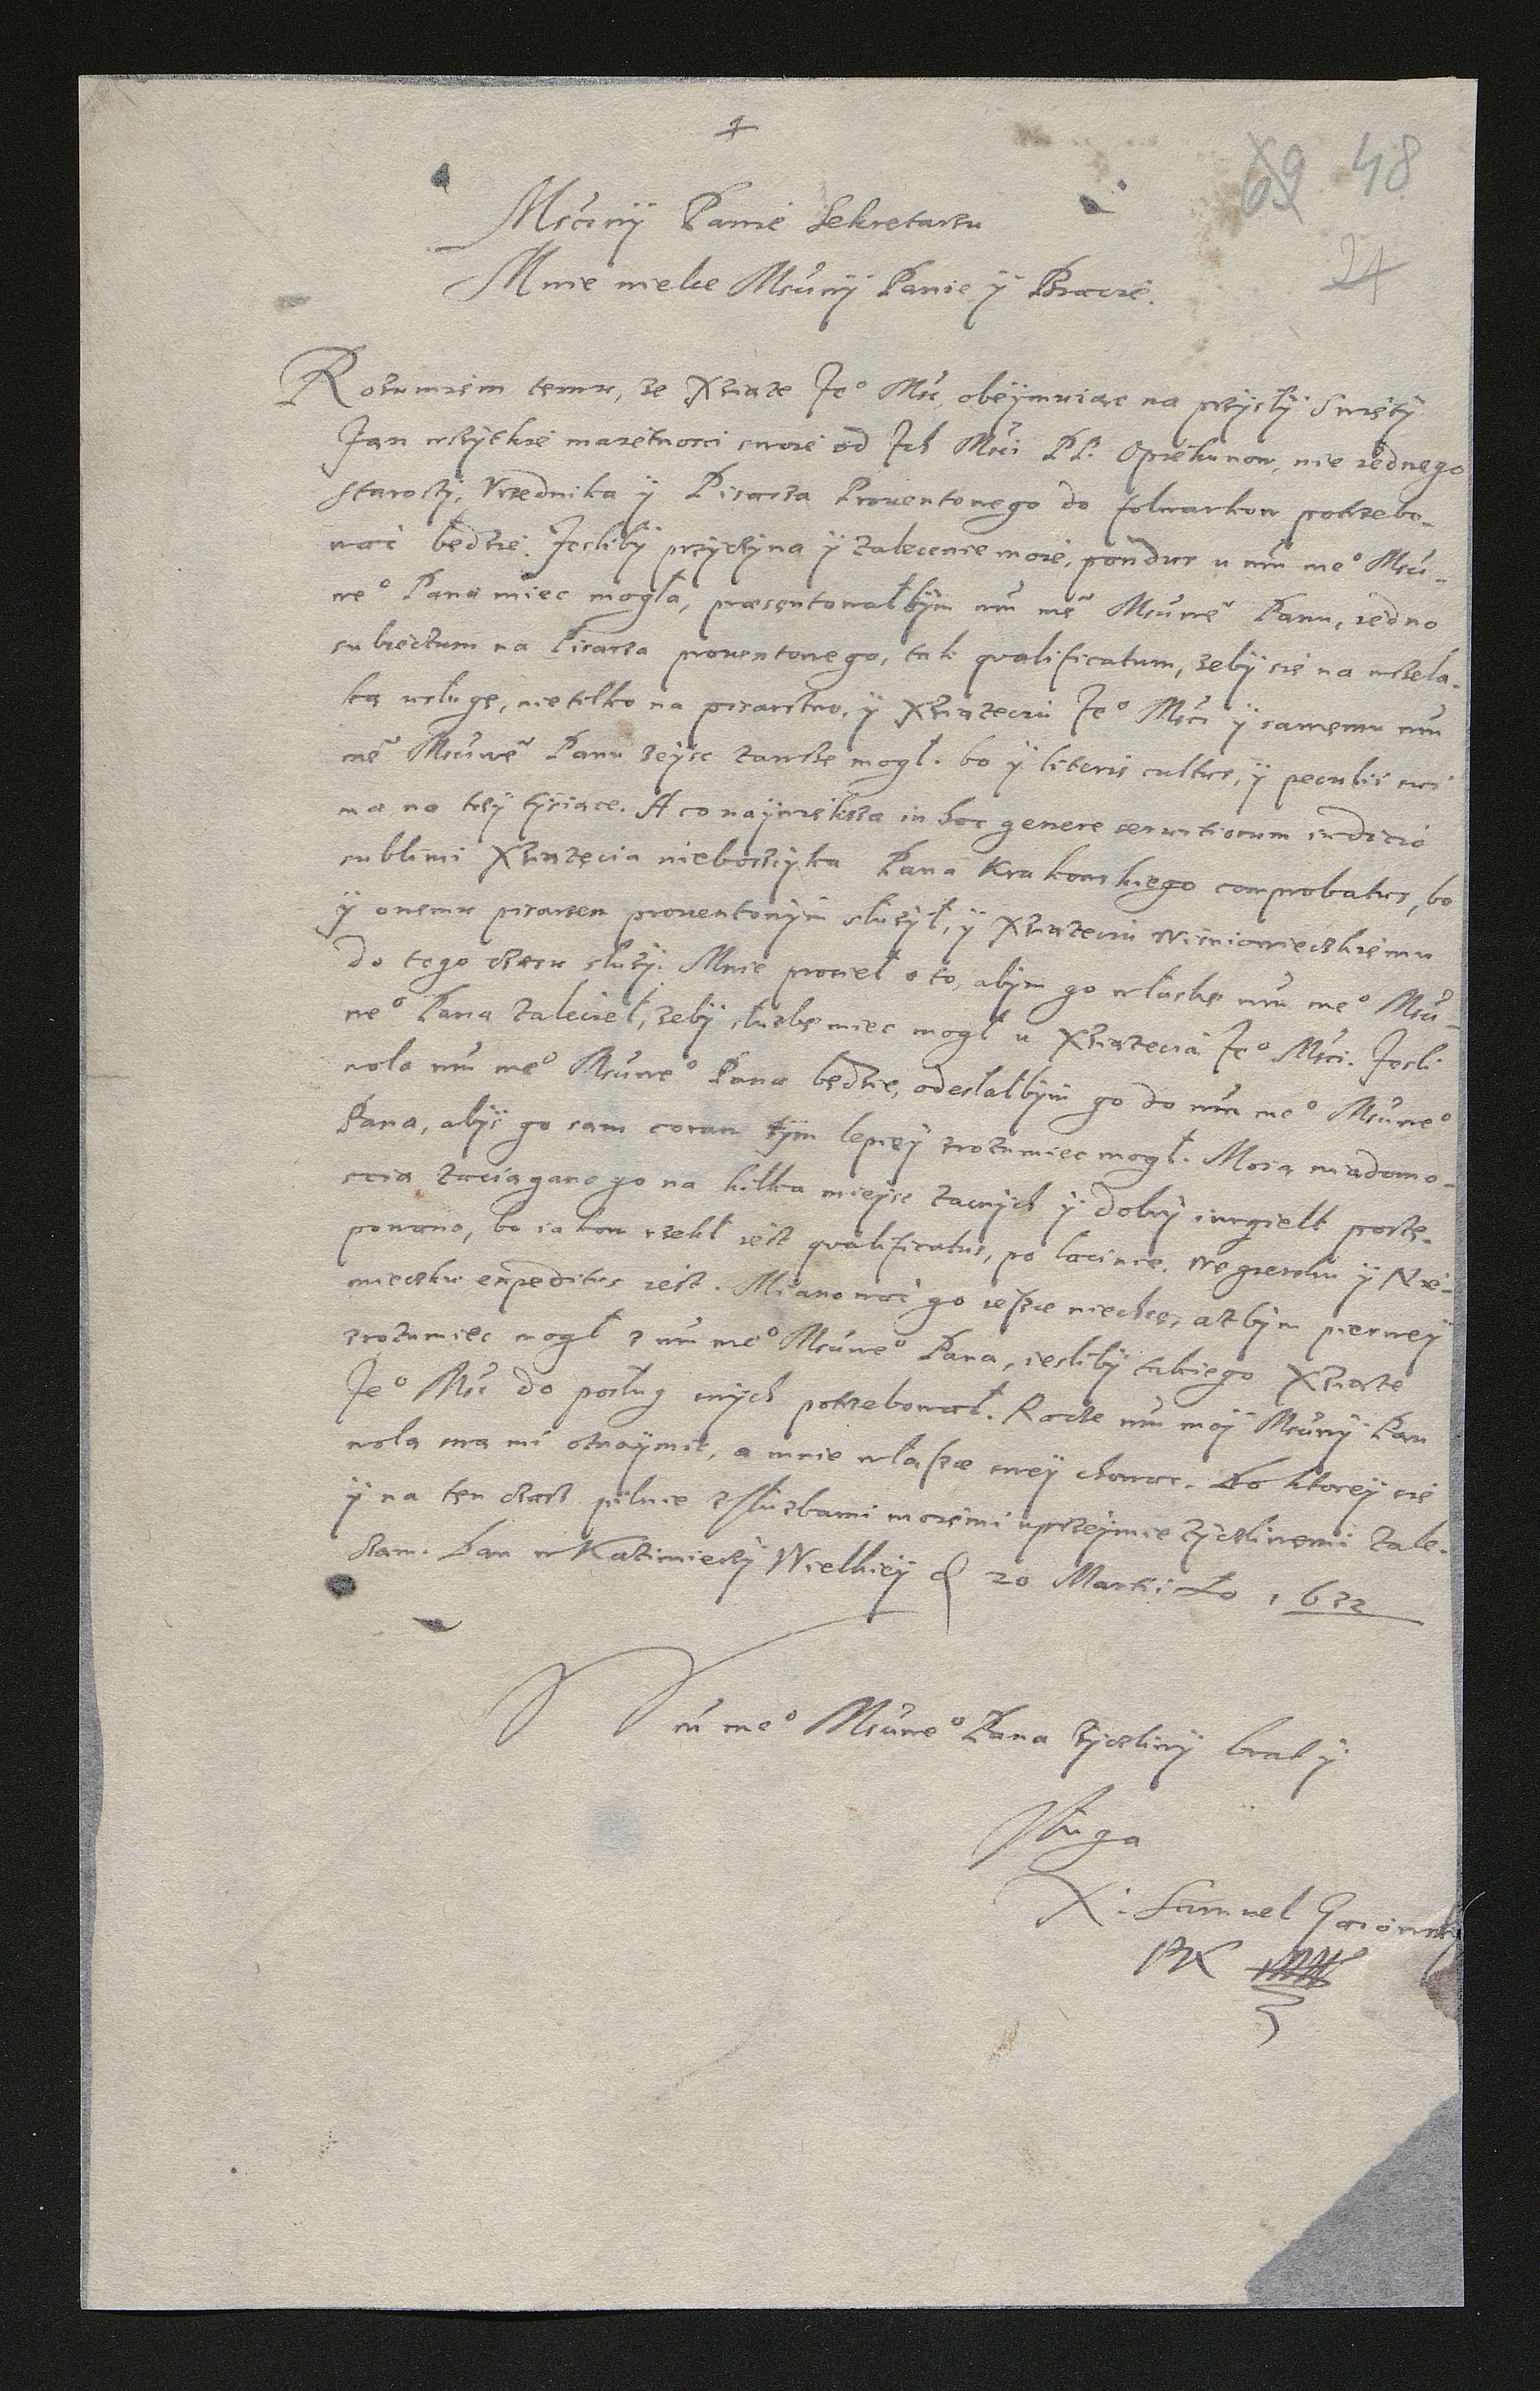 69 48
24
Mściwÿ Panie Sekretarzu
Mnie wielce Mściwÿ Panie ÿ Bracie.
Rozumiem temu, że Xżiąże Je° Mść, obeÿmuiąc na przÿsłÿ Swiętÿ
Jan wszÿtkie maiętnosci swoie od Ich Mści PP. Opiekunow, nie iednego
Starostÿ, Vrzednika ÿ Pisarza Prouentowego do folwarkow potrzebo-
wać będzie. Jesliby przÿczÿna ÿ zalecenie moie, pondus u wm me° Mści-
we° Pana miec mogła, praesentowałbÿm wm mę Mściwę Panu, iedno
subiectum na Pisarza prouentowego, tak qvalificatum, żebÿ się na wszela-
ką usługę, nie tilko na pisarstwo, ÿ Xżiążęciu Je° Mści ÿ samemu wm
mę Mściwę Panu zeÿsc zawsze mogł. bo ÿ literis cultus, ÿ peculii sui
ma na trzÿ tÿsiące. A co naÿwiększa in hoc genere seruitiorum iudicio
sublimi Xżiążęcia nieboszczÿka Pana Krakowskiego comprobatus, bo
ÿ onemu pisarzem prouentowÿm służÿł, ÿ Xżiążęciu Wiśniowieczkiemu
do tego czasu służÿ. Mnie prosieł o to, abÿm go w łaskę wm me° Mści-
we° Pana zalecieł, żebÿ służbę miec mogł u Xżiążęcia Je° Mści. Jesli
wola wm me° Mściwe° Pana będzie, odesłałbÿm go do wm me° Mściwe°
Pana, abÿś go sam coram tÿm lepieÿ zrozumiec mogł. Moią wiadomo-
scią zaciągano go na kilka mieÿsc zacnÿch ÿ dobrÿ iurgielt postę-
powano, bo iakom rzekł iest qvalificatus, po łacinie, Węgiersku ÿ Nie-
mieczku expeditus iest. Mianowáć go ieszcze niechcę, ażbÿm pierweÿ
zrozumiec mogł z wm me° Mściwe° Pana, iesliby takiego Xżiąże
Je° Mść do posług swÿch potrzebował. Racz wm moÿ Mściwÿ Pan
wolą swą mi oznaÿmić, a mnie w łasce sweÿ chowac. Do ktoreÿ się
ÿ na ten czas pilnie z służbami moiemi uprzeÿmie żÿczliwemi zale-
czam. Dan w Kazimierzÿ Wielkieÿ d 20 Martii Ao 1632
wm me° Mściwe° Pana żÿczliwÿ brat ÿ
sługa
X. Samuel